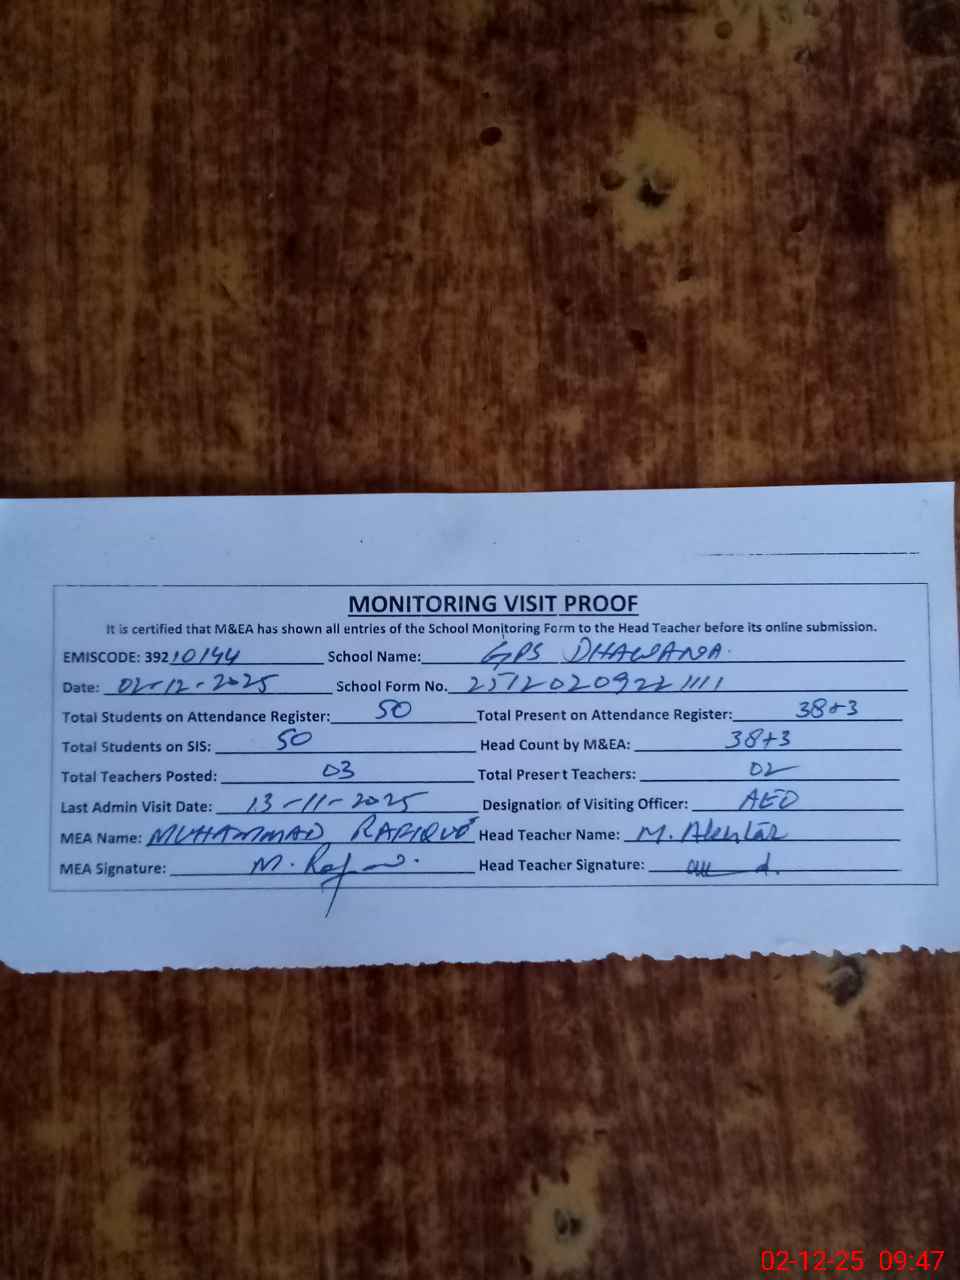 MONITORING VISIT PROOF
It is certified that M&EA has shown all entries of the School Monitoring Form to the Head Teacher before its online submission.
EMISCODE: 39210144 School Name: GPS DHAWANA.
Date: 02-12-2025 School Form No. 25120209221111
Total Students on Attendance Register: 50 Total Present on Attendance Register: 38+3
Total Students on SIS: 50 Head Count by M&EA: 38+3
Total Teachers Posted: 03 Total Present Teachers: 02
Last Admin Visit Date: 13-11-2025 Designation of Visiting Officer: AEO
MEA Name: MUHAMMAD RAFIQUE Head Teacher Name: M. Akhtar
MEA Signature: M. Head Teacher Signature:
02-12-25 09:47